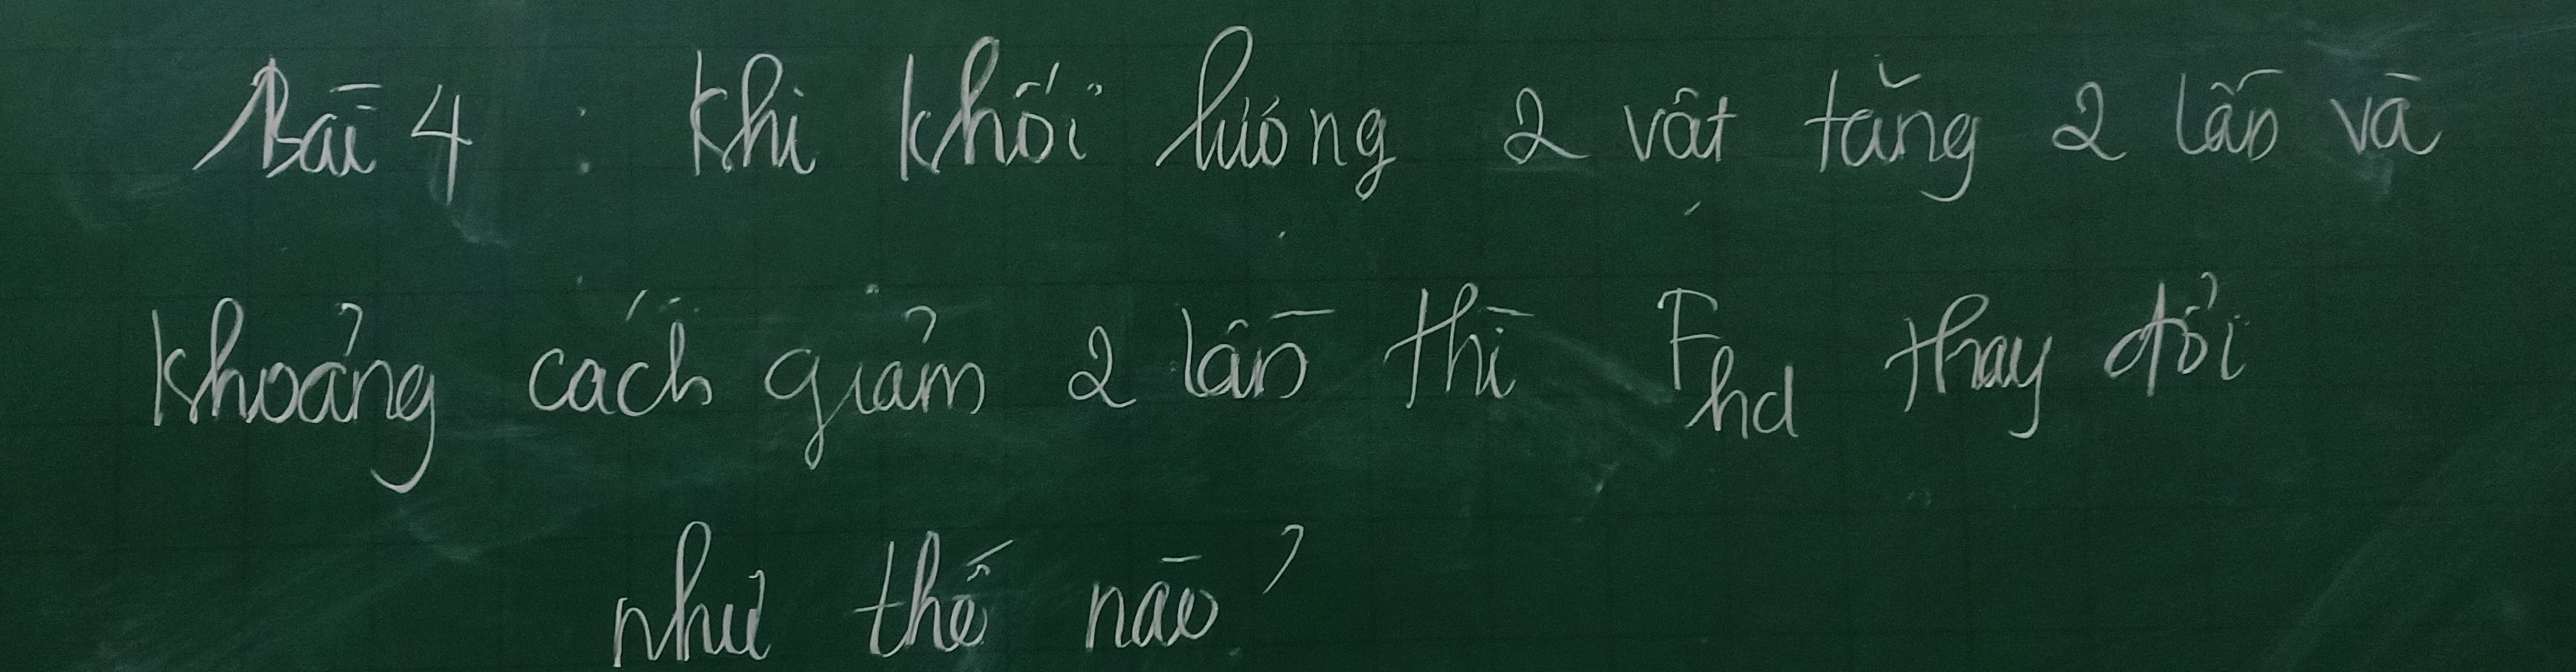 Bài 4 : Khi khối lượng 2 vật tăng 2 lần và
khoảng cách giảm 2 lần thì Fhd thay đổi
như thế nào?